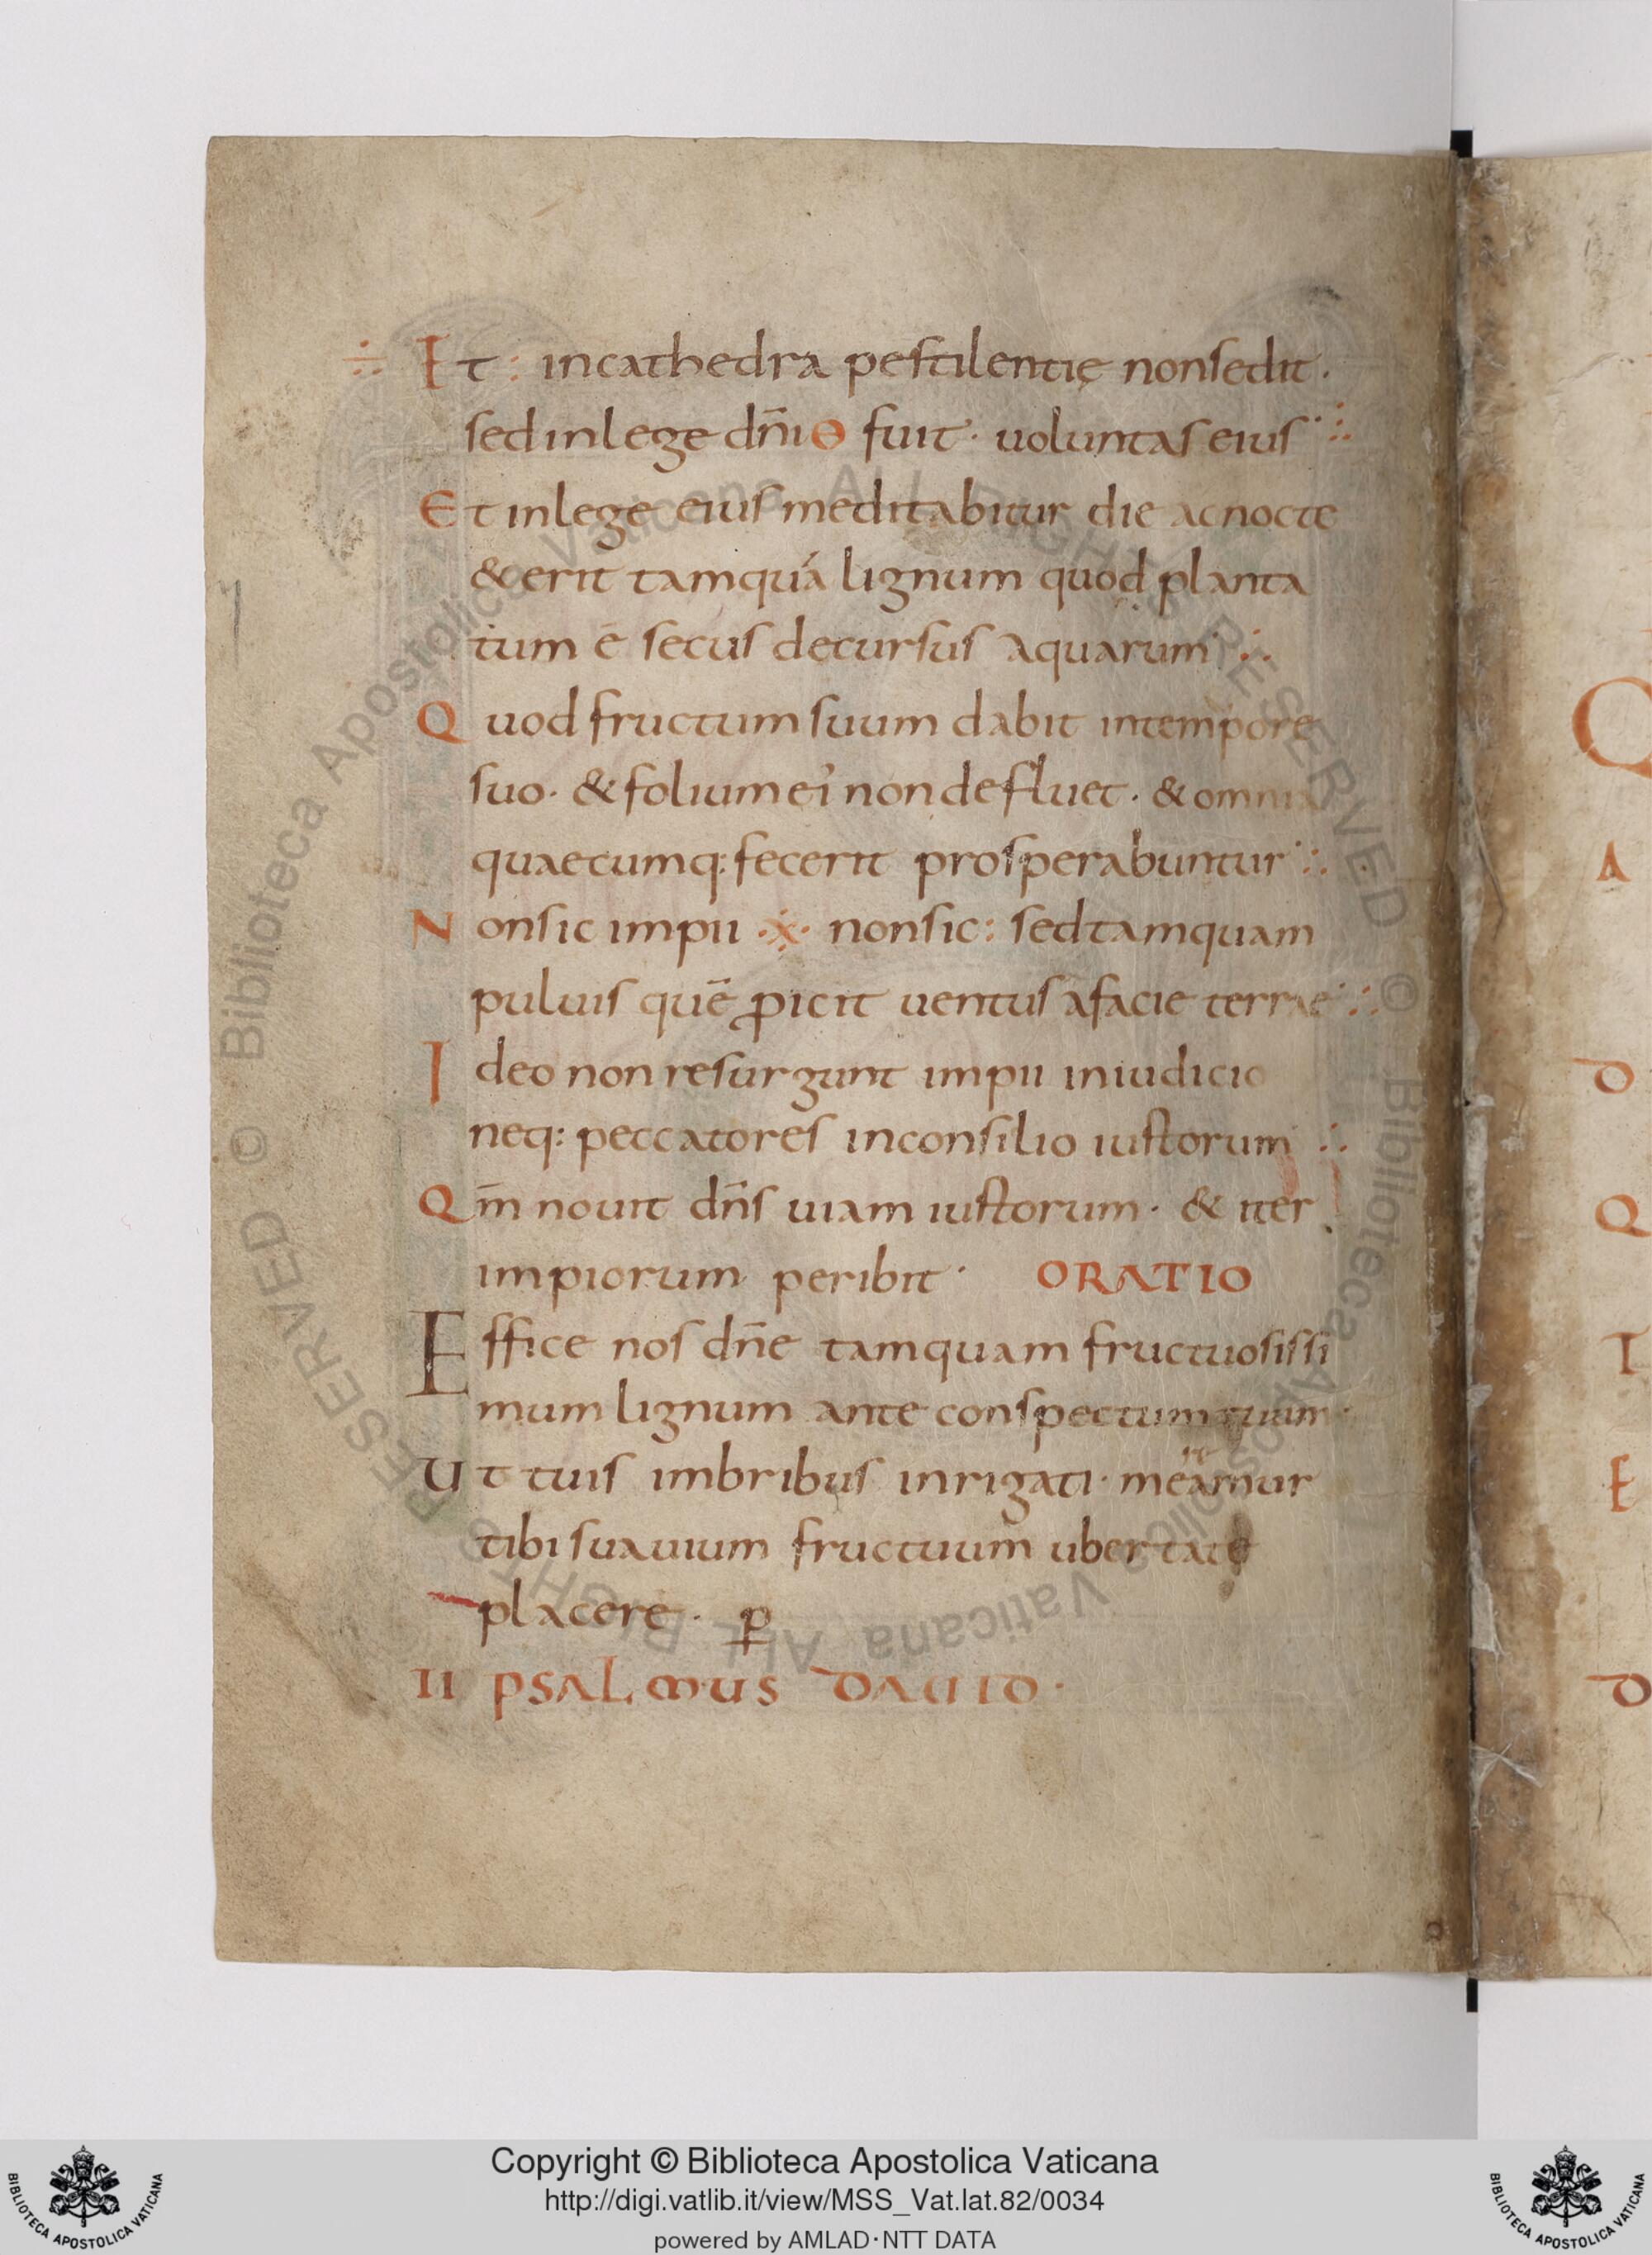 ÷ Et : incathedra pestilentię nonsedit .
sedinlege dn̄i ϴ fuit · uoluntas eius ·:·
Et inlege eius meditabitur die acnocte
& erit tamquá lignum quod planta
tum ē secus decursus aquarum ·:·
Quod fructum suum dabit intempore
suo · & folium ei' non defluet · & omnia
quaecumq: fecerit prosperabuntur ·:·
Nonsic impii ·x· nonsic : sedtamquam
puluis quē ꝓicit uentus afacie terrae ·:·
Ideo non resurgunt impii iniudicio
neq: peccatores inconsilio iustorum ·:·
Qm̄ nouit dn̄s uiam iustorum · & iter
impiorum peribit · ORATIO
Effice nos dn̄e tamquam fructuosissi
mum lignum ante conspectum tuum ·
re
Ut tuis imbribus inrigati · meamur
tibi suauium fructuum ubertate
placere · ꝑ
II PSALMUS DAUID ·
Q
A
D
Q
T
E
D
Copyright © Biblioteca Apostolica Vaticana
http://digi.vatlib.it/view/MSS_Vat.lat.82/0034
powered by AMLAD·NTT DATA
BIBLIOTECA APOSTOLICA VATICANA
BIBLIOTECA APOSTOLICA VATICANA
© Biblioteca Apostolica Vaticana ALL RIGHTS RESERVED © Biblioteca Apostolica Vaticana ALL RIGHTS RESERVED